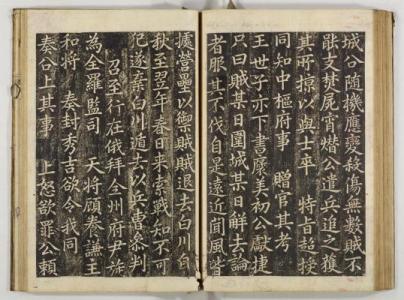 城公随機應變殺傷無數賊不
能支焚屍宵熸公遣兵追之獲
其所掠以與士卒　特旨超授
同知中樞府事　贈官其考
王世子亦下書褒美初公獻捷
只曰賊某日圍城某日解去論
者服其不伐自是遠近聞風皆
據營壘以御賊賊退去白川自
秋至翌年春日來索戰知不可
犯遂棄白川遁去以兵曹叅判
召至行在俄拜全州府尹旋
為全羅監司　天將顧養謙主
和將　奏封秀吉欲令我同
奏公上其事　上怒欲罪公賴